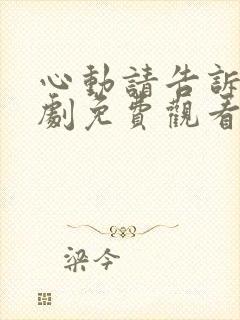 心動請告訴
劇免費觀看
梁今